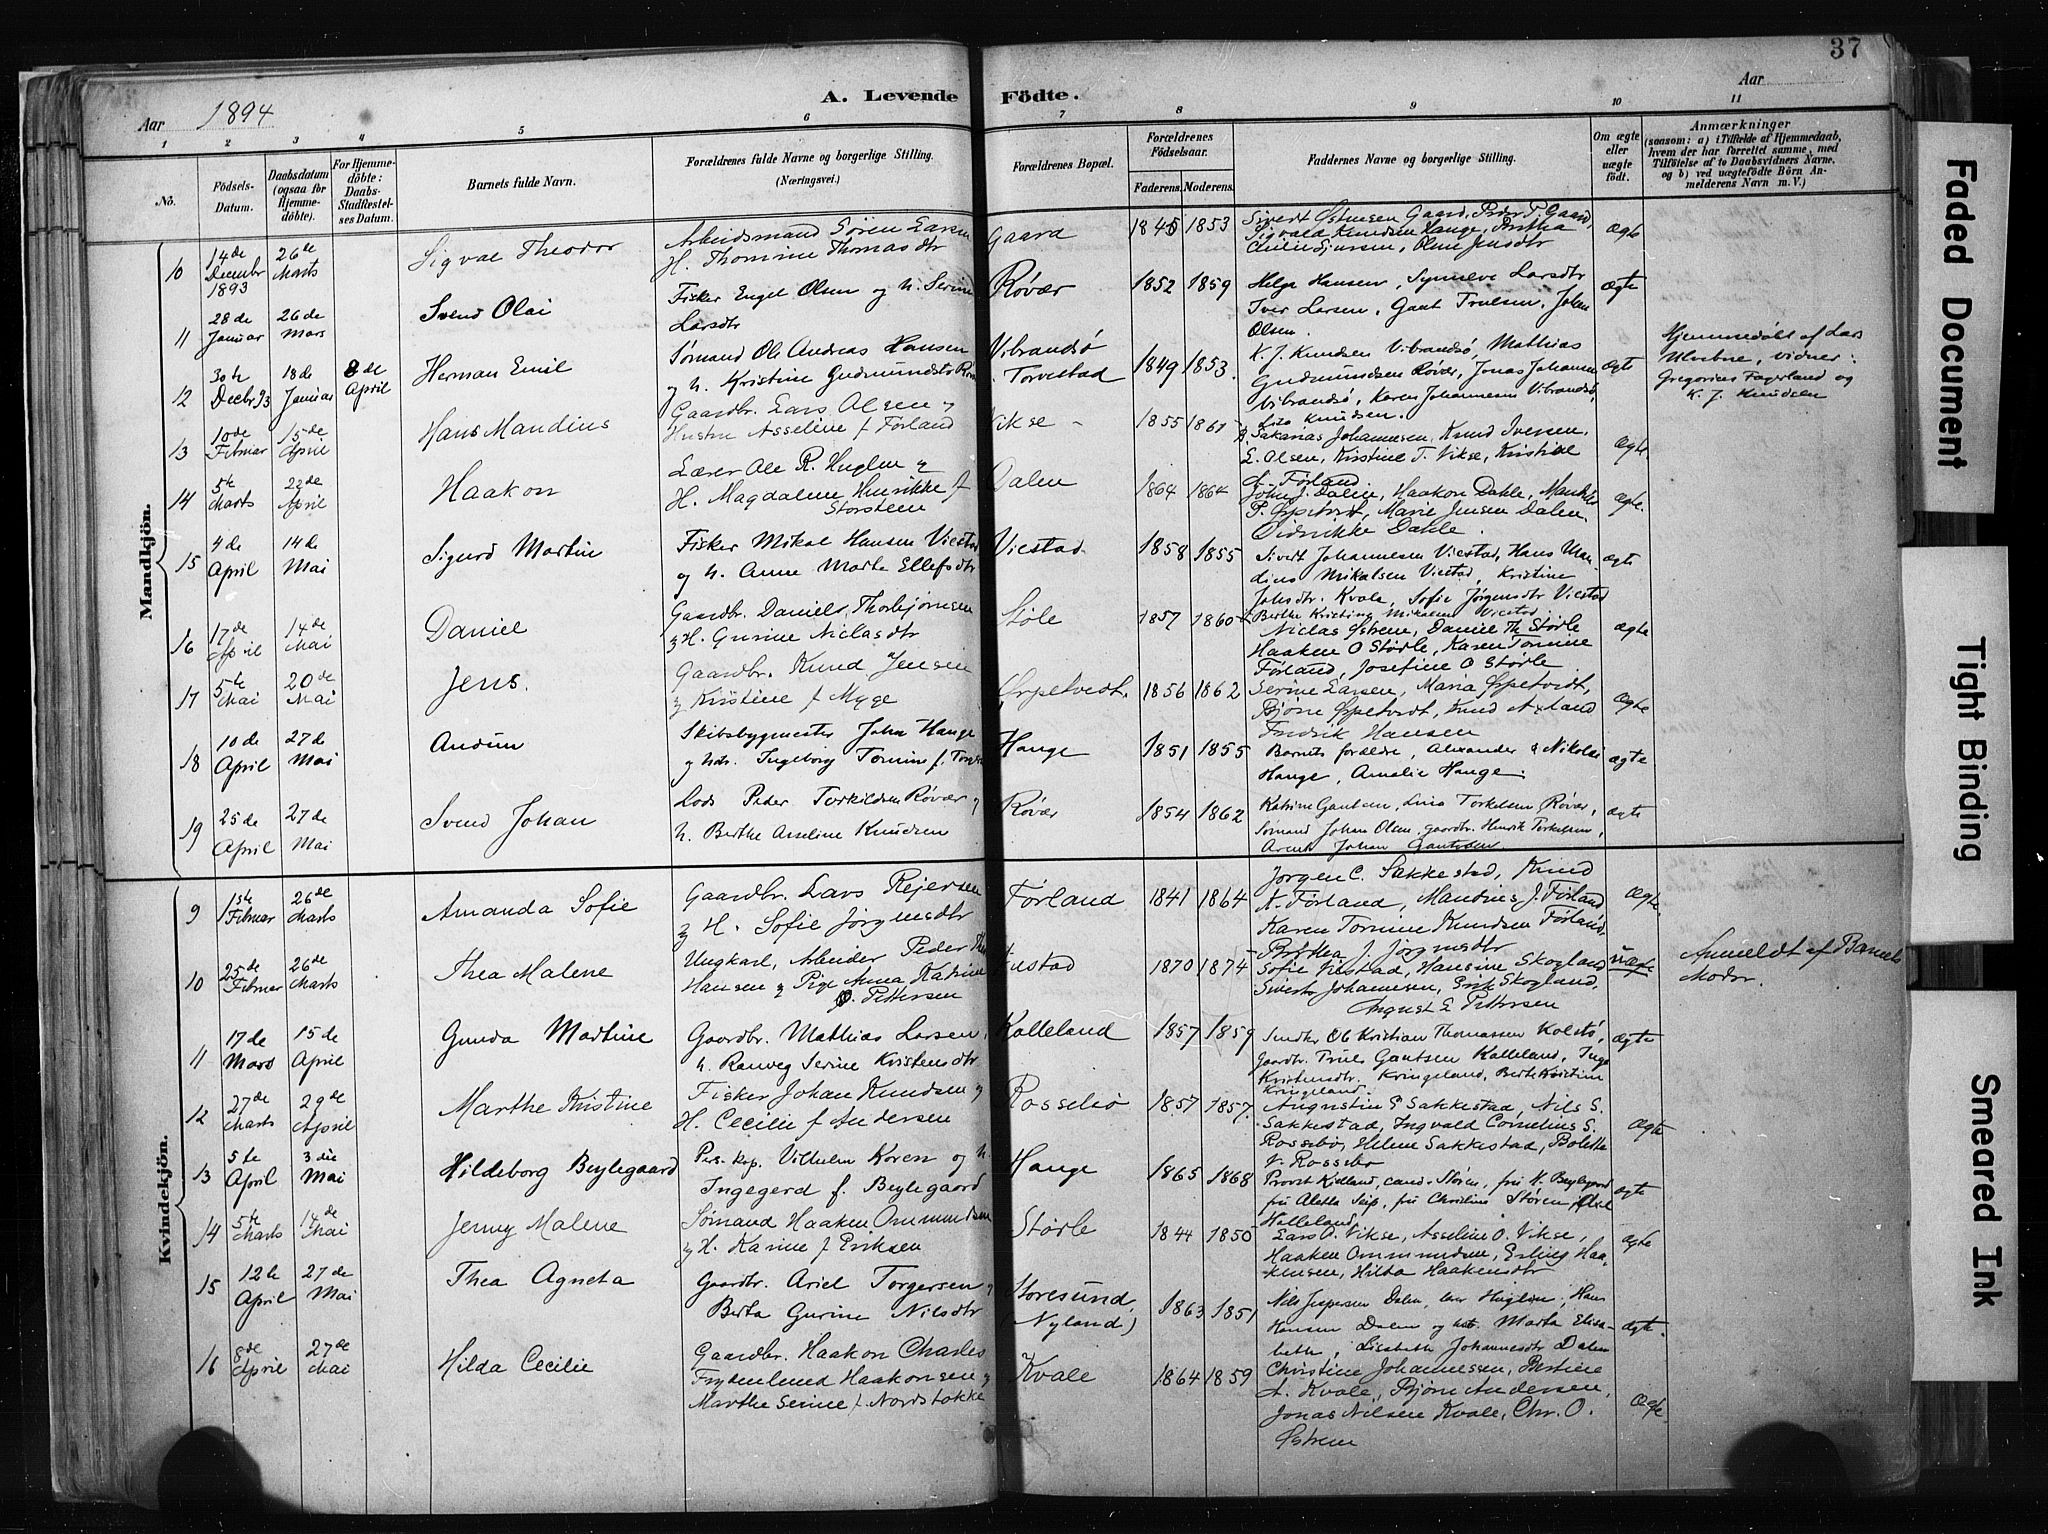 37
A. Levende Födte.
Aar 1894
Aar
1 2 3 4 5 6 7 8 9 10 11
No.
Födsels-Datum.
Daabsdatum (ogsaa for Hjemmedöbte).
For Hjemmedöbte: Daabs-Stadfæstelses Datum.
Barnets fulde Navn.
Forældrenes fulde Navne og borgerlige Stilling. (Næringsvei.)
Forældrenes Bopæl.
Forældrenes Födselsaar.
Faderens. Moderens.
Faddernes Navne og borgerlige Stilling.
Om ægte eller uægte födt.
Anmærkninger
(saasom: a) i Tilfælde af Hjemmedaab, hvem der har forrettet samme, med Tilföielse af to Daabsvidners Navne, og b) ved uægtefödte Börn Anmelderens Navn m. V.)
Mandkjön.
10 14de Decembr 1893 26de Marts Sigval Theodor
Arbeidsmand Sören Larsen
H. Thomine Thomasdtr
Gaard 1845 1853
Sivert Østensen Gaard, Peder T. Gaard,
Sigvald Knudsen Hauge, Bertha
Oline Jensdtr
Ægte
11 28de Januar 26de Mars Svend Olai
Fisker Engel Olsen og h. Serine
Larsdtr
Røvær 1852 1859
Helga Hansen, Synneve Larsdtr
Iver Larsen, Gaut Truelsen, Johan
Olsen.
ægte
12 30te Decbr 93 18de Januar 8de April Herman Emil
Sømand Ole Andreas Hansen
og h. Kristine Gudmundsdtr
Vibrandsø
Torvestad 1849 1853.
K. J. Knudsen Vibrandsø, Mathias
Gudmundsen Røvær, Jonas Johansen
Vibrandsø, Karen Johannesen Vibrandsø,
Lisa Knudsen.
ægte
Hjemmedøbt af Las
Ulvebne, vidner:
Gregorius Fagerland og
K. J. Knudsen
13 10de Februar 15de April Hans Mandius
Gaardbr. Lars Olsen og
Hustru Asseline f Førland
Vikse 1855 1861
Sakarias Johannesen, Knud Iversen,
E. Olsen, Kristine T. Vikse, Kristine
L. Førland
Ægte
14 5te Marts 22de April Haakon
Lærer Ole R. Huglen og
H. Magdalene Henrikke f
Storsteen
Dalen 1864 1864
John J. Dalen, Haakon Dahle, Mandius
P. Ørpetvedt, Marie Jensen Dalen
Didrikke Dahle.
Ægte.
15 4de April 14de Mai Sigurd Martin
Fisker Mikal Hansen Viestad
og h. Anne Marte Ellefsdtr
Viestad 1858 1855
Sivert Johannesen Viestad, Hans Man
dius Mikalsen Viestad, Kristine
Johsdtr. Kvale, Sofie Jørgensdtr Viestad
Berthe Kristine Mikalsen Viestad.
ægte
16 17de April 14de Mai Daniel
Gaardbr. Daniels Thorbjørnsen
og H. Gurine Niclasdtr
Støle 1857 1860
Niclas Østrem, Daniel Th Størle
Haaken O Størle, Karen Tomine
Førland, Josefine O Størle
Ægte
17 5te Mai 20de Mai Jens.
Gaardbr. Knud Jensen
og Kristine f Myge
Ørpetvedt. 1856 1862
Serine Larsen, Maria Ørpetvedt,
Bjørn Ørpetvedt, Knud Axland
Fredrik Hansen
Ægte
18 10de April 27de Mai Audun
Skibsbygmester John Hauge
og hdr. Ingeborg Tomine f.
Hauge 1851 1855
Barnets forældre, Alexander & Nikolai
Hauge, Amalie Hauge.
ægte
19 25de April 27de Mai Svend Johan
Lods Peder Torkildsen Røvær og
h. Berthe Aseline Knudsen
Røvær 1854 1862
Katrine Gautsen, Lina Torkelsen Røvær,
Sømand Johan Olsen, gaardbr. Henrik Torkelsen,
Johan Gautesen
ægte
Kvindekjön.
9 1ste Februar 26de Marts Amanda Sofie
Gaardbr. Lars Rejersen
og H. Sofie Jørgensdtr
Førland 1841 1864
Jørgen C. Sakkestad, Knud
K. Førland, Mandius J. Førland
Karen Tomine Knudsen Førland,
Berthea J. Jørgensdtr
Ægte.
10 25de Februar 26de Marts Thea Malene
Ungkarl, Arbeider Peder
Hansen og Pige Anna Katrine
O. Pettersen
1870 1874
Sofie Viestad, Hansine Skogland
Siverts Johannesen, Erik Skogland,
August E Pettersen
uægte
Anmeldt af Barnets
Moder.
11 17de Mars 15de April Gunda Martine
Gaardbr. Mathias Larsen,
h. Ranveg Serine Kristensdtr
Kalleland 1857 1859
Smed Ole Kristian Thomassen Kolstø,
Gaardbr. Truls Gautsen Kalleland, Inga
Kristensdtr. Kringeland, Berte Kristine
Kringeland.
ægte
12 27de Marts 29de April Marthe Kristine
Fisker Johan Knudsen og
H. Cecilie f Andersen
Rossebø 1857 1857
Augustin E Sakkestad, Nils S.
Sakkestad, Ingvald Cornelius S.
Rossebø, Helene Sakkestad, Bolette
V. Rossebø
Ægte
13 5te April 3die Mai Hildeborg Beylegaard
Pers. kap. Vilhelm Koren og h.
Ingegerd f. Beylegaard
Hauge 1865 1868
Provst Kielland, cand. Støren, fru H. Beylegaard
fru Aletta Seip, fru Christine Støren,
Halleland
ægte
14 5te Marts 14de Mai Jenny Malene
Sømand Haaken Ommundsen
og H. Karine f Eriksen
Størle 1844 1850
Lars O. Vikse, Asseline O. Vikse,
Haaken Ommundsen, Erling Haa-
kensen, Hilda Haakensdtr
ægte
15 12te April 27de Mai Thea Agneta
Gaardbr. Ariel Torgersen og
Berta Gurine Nilsdtr
Storesund,
(Nyland) 1863 1851
Nils Jespersen Dalen, lær Huglen, Hans
Hansen Dalen og hst. Marta Elisa-
beth, Lisabeth Johannesdtr Dalen
ægte.
16 8de April 27de Mai Hilda Cecilie
Gaardbr. Haakon Charles
Frydenlund Haakonsen og
Marthe Serine f Nordstokke
Kvale 1864 1859
Christine Johannessen, Bertine
A. Kvale, Bjørn Andersen,
Jonas Nilsen Kvale, Chr. O.
Østrem
Ægte
Faded Document
Tight Binding
Smeared Ink